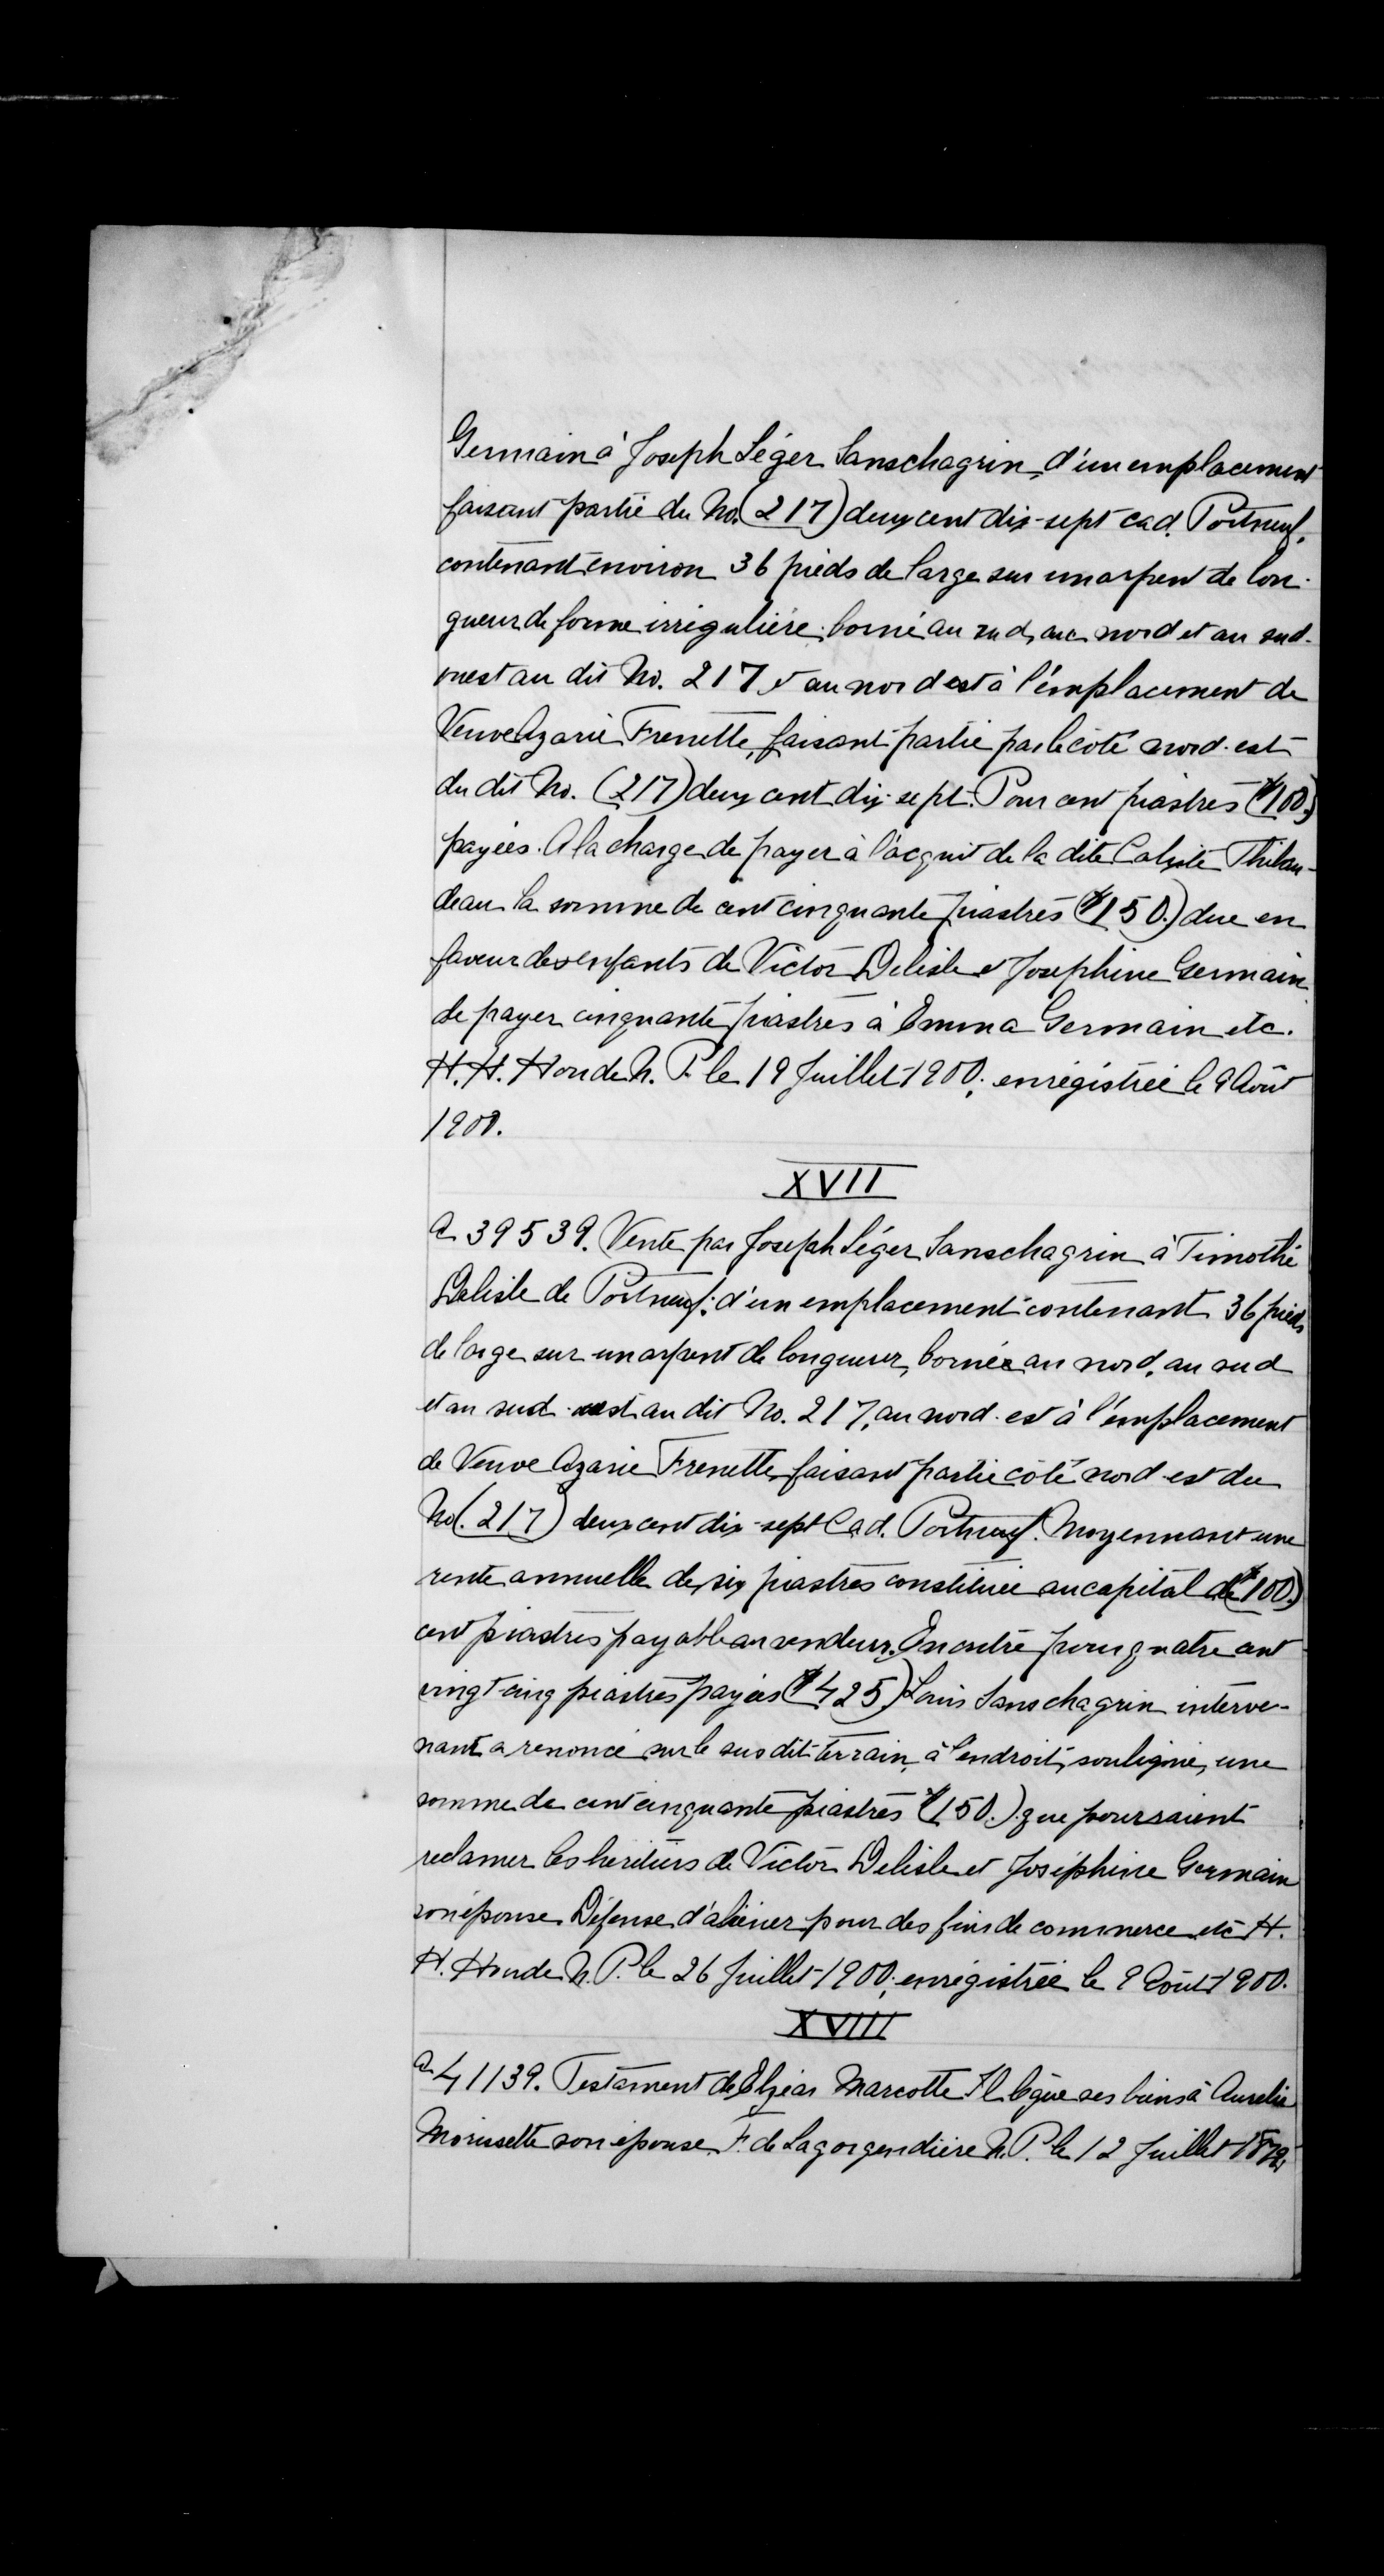 Germain à Joseph Léger Sanschagrin, d'un emplacement
faisant partie du No. (217) deux cent dix-sept cad. Portneuf,
contenant environ 36 pieds de large sur un arpent de lon-
gueur de forme irrégulière; borné au sud, au nord et au sud-
ouest au dit No. 217 et au nord est à l'emplacement de
Veuve Azarie Frenette, faisant partie par le côté nord-est
du dit No. (217) deux cent dix-sept. Pour cent piastres ($100.)
payées. A la charge de payer à l'acquit de la dite Calixte Thibau-
deau la somme de cent cinquante piastres ($150.) due en
faveur des enfants de Victor Delisle et Josephine Germain
de payer cinquante piastres à Emma Germain etc.
H. H. Houde N. P. le 19 Juillet 1900; enrégistrée le 9 Août
1900.
XVII
a 39539. Vente par Joseph Léger Sanschagrin à Timothé
Delisle de Portneuf; d'un emplacement contenant 36 pieds
de large sur un arpent de longueur, bornée au nord, au sud
et au sud-ouest au dit No. 217, au nord-est à l'emplacement
de Veuve Azarie Frenette, faisant partie côté nord-est du
No (217) deux cent dix-sept Cad. Portneuf. Moyennant une
rente annuelle de six piastres constituée au capital de ($100.)
cent piastres payable au vendeur. En outre pour quatre cent
vingt cinq piastres payées ($425) Louis Sanschagrin interve-
nant a renoncé sur le sus dit terrain, à l'endroit souligné, une
somme de cent cinquante piastres ($150.) que pourraient
reclamer les héritiers de Victor Delisle et Joséphine Germain
son épouse. Défense d'aliéner pour des fins de commerce etc H.
H. Houde N. P. le 26 Juillet 1900; enrégistrée le 9 Août 1900.
XVIII
a 41139. Testament de Elzéar Marcotte Il lègue ses biens à Aurelie
Morissette son épouse. F. de Lagorgendière N. P. le 12 Juillet